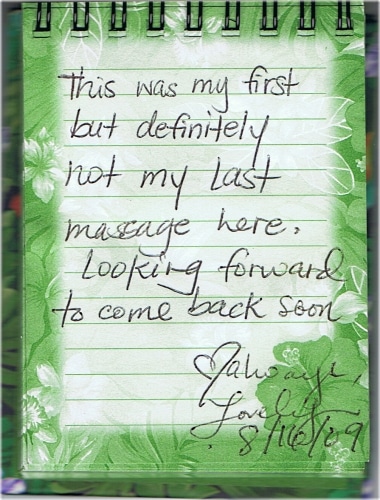 This was my first
but definitely
not my last
massage here.
Looking forward
to come back soon
♡always,
Lovely
8/16/09